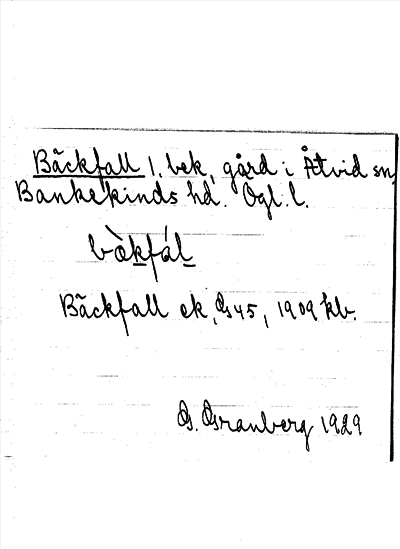 Bäckfall 1. bek, gård i Åtvid sn,
Bankekinds hd. Ögl. l.
bòkfál
Bäckfall ek, Gs 45, 1909 kb.
G. Granberg 1929